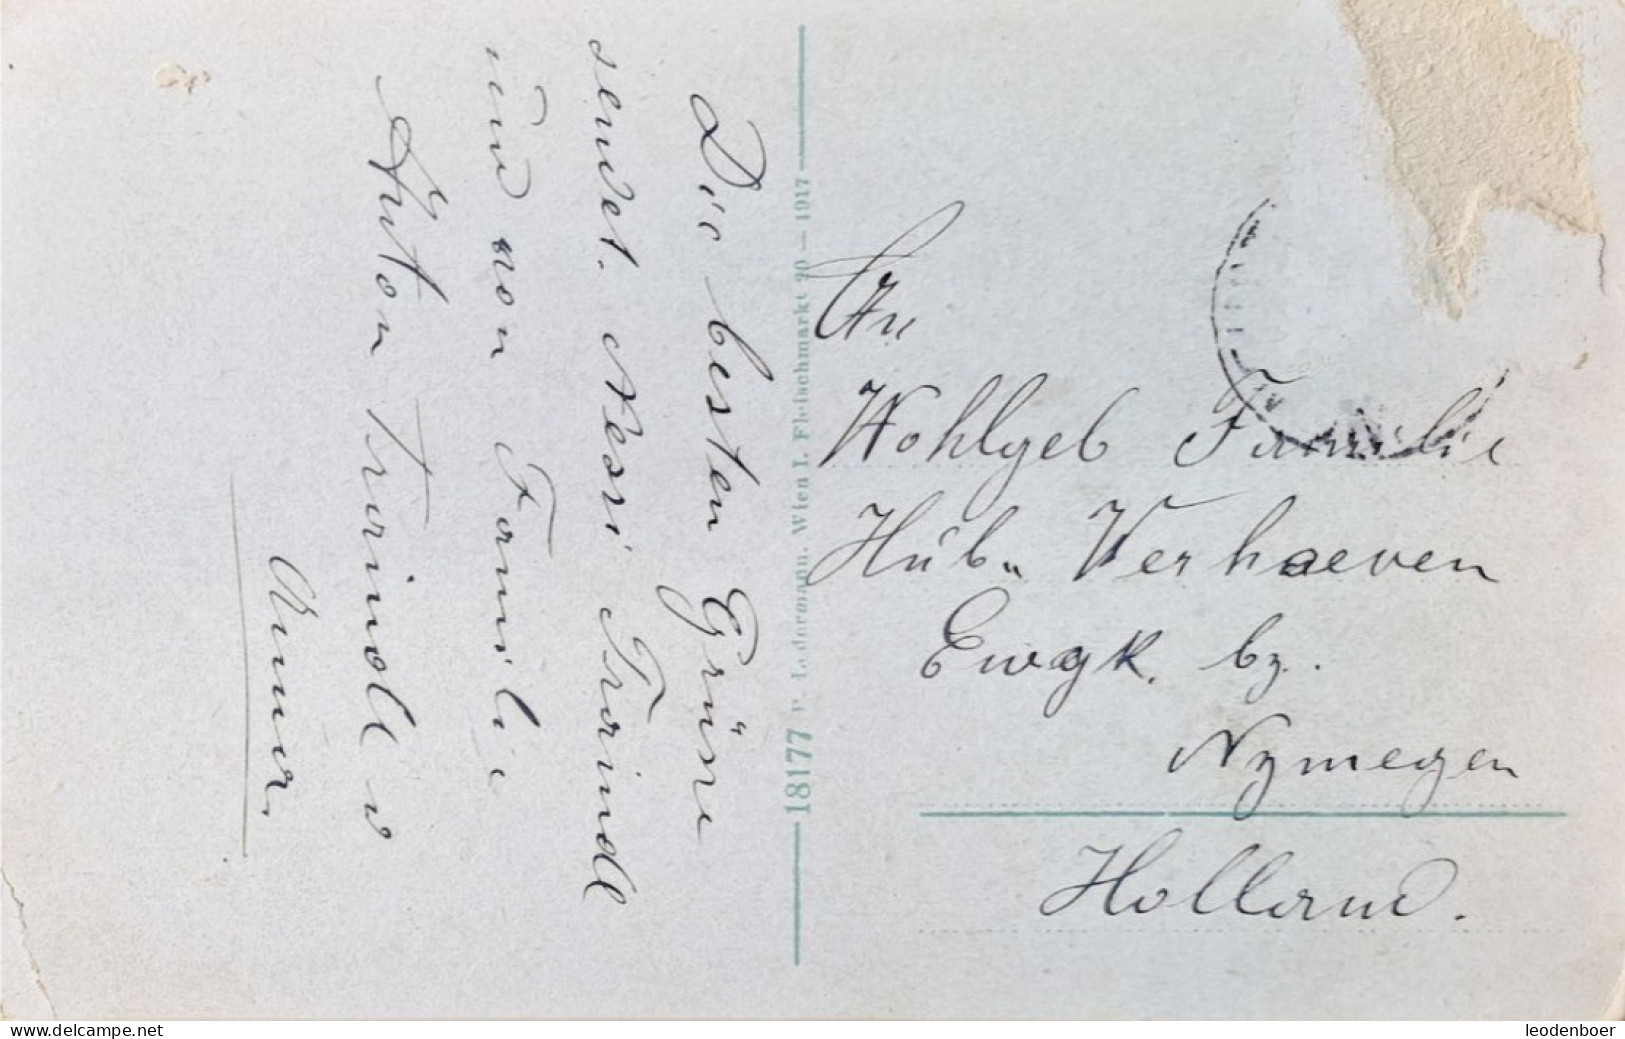 Die besten Grüne
sendet. Nessi Troindl
und von Familie
Anton Troindl
18177 P. Ledermann, Wien I. Fleischmarkt 20 — 1917
An
Wohlgeb Familie
Hüb. Verhoeven
Ewgk. bz.
Nymegen
Holland.
www.delcampe.net
leodenboer